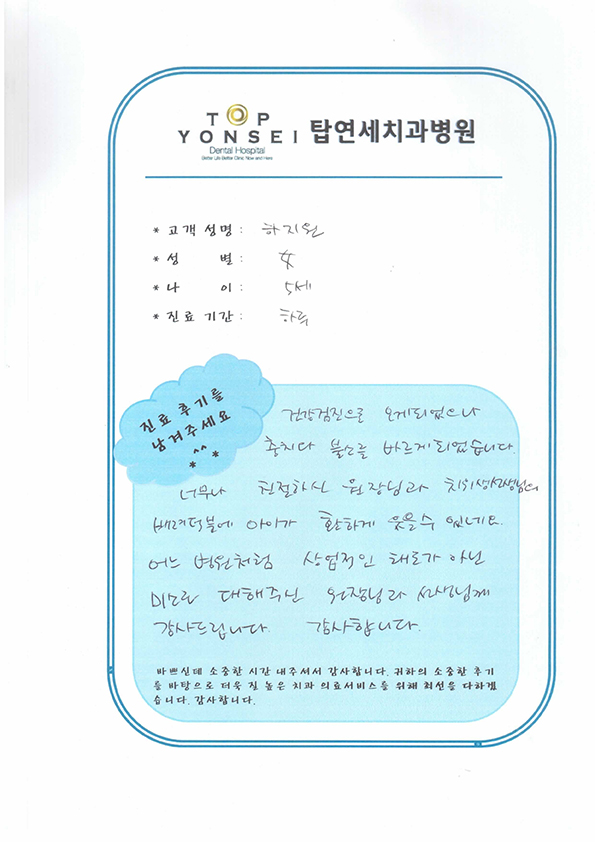 TOP
YONSEI 탑연세치과병원
Dental Hospital
Better Life Better Clinic Now and Here
* 고객 성명 : 하지원
* 성 별 : 女
* 나 이 : 5세
* 진료 기간 : 하루
진료 후기를
남겨주세요
^^
* *
건강검진으로 오게되었으나
충치다 불소를 바르게되었습니다.
너무나 친절하신 원장님과 치위생선생님의
배려덕분에 아이가 환하게 웃을수 있네요.
어느 병원처럼 상업적인 태도가 아닌
미소로 대해주신 원장님과 선생님께
감사드립니다. 감사합니다.
바쁘신데 소중한 시간 내주셔서 감사합니다. 귀하의 소중한 후기
를 바탕으로 더욱 질 높은 치과 의료서비스를 위해 최선을 다하겠
습니다. 감사합니다.